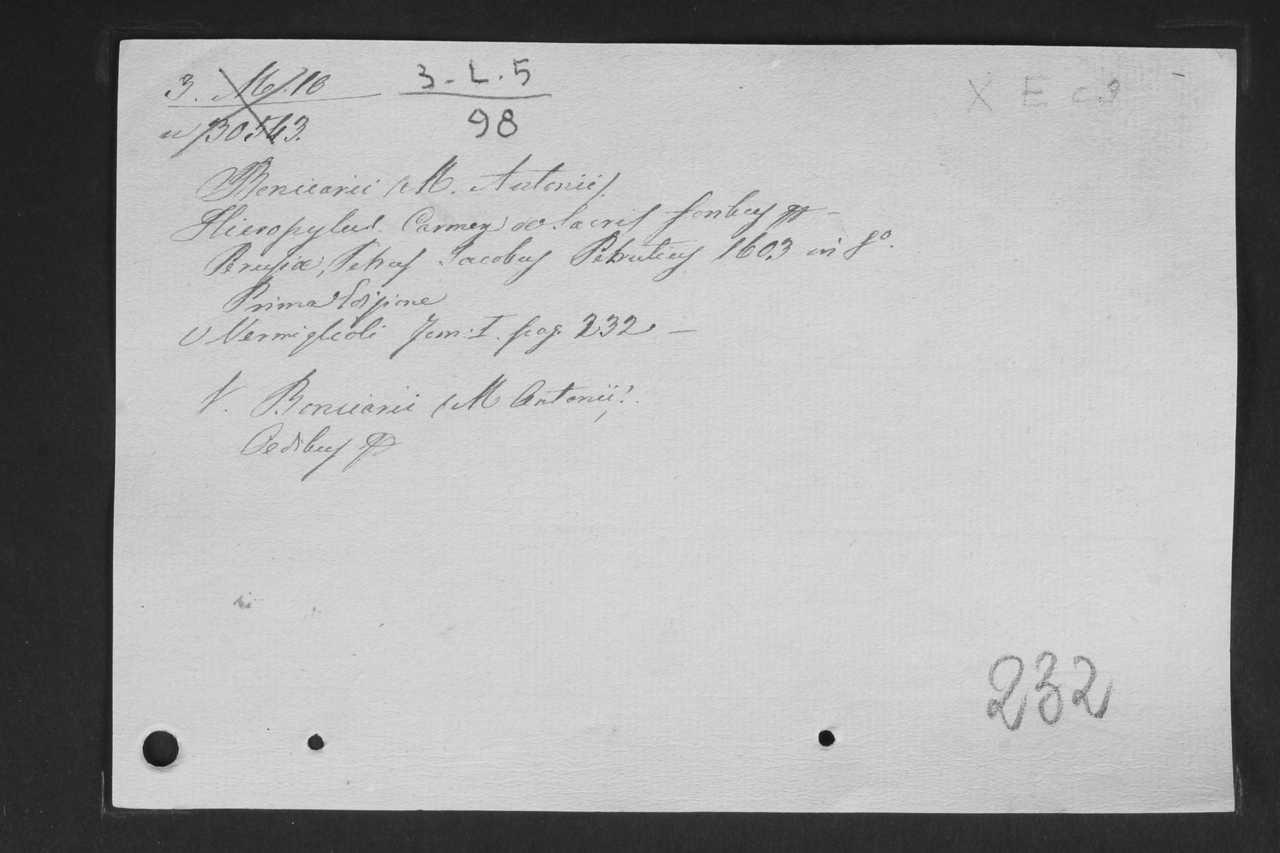 3. M. 10
3 - L. 5
X E c 9
n 30543.
98
Bonciarii (M. Antonii)
Hieropylus. Carmen de Sacris foribus &
Perusiæ, Petrus Jacobus Petrutius 1603 in 8º.
Prima Edizione
V Vermiglioli Tom: I. pag. 232. —
V. Bonciarii (M Antonii).
Aedibus &
232